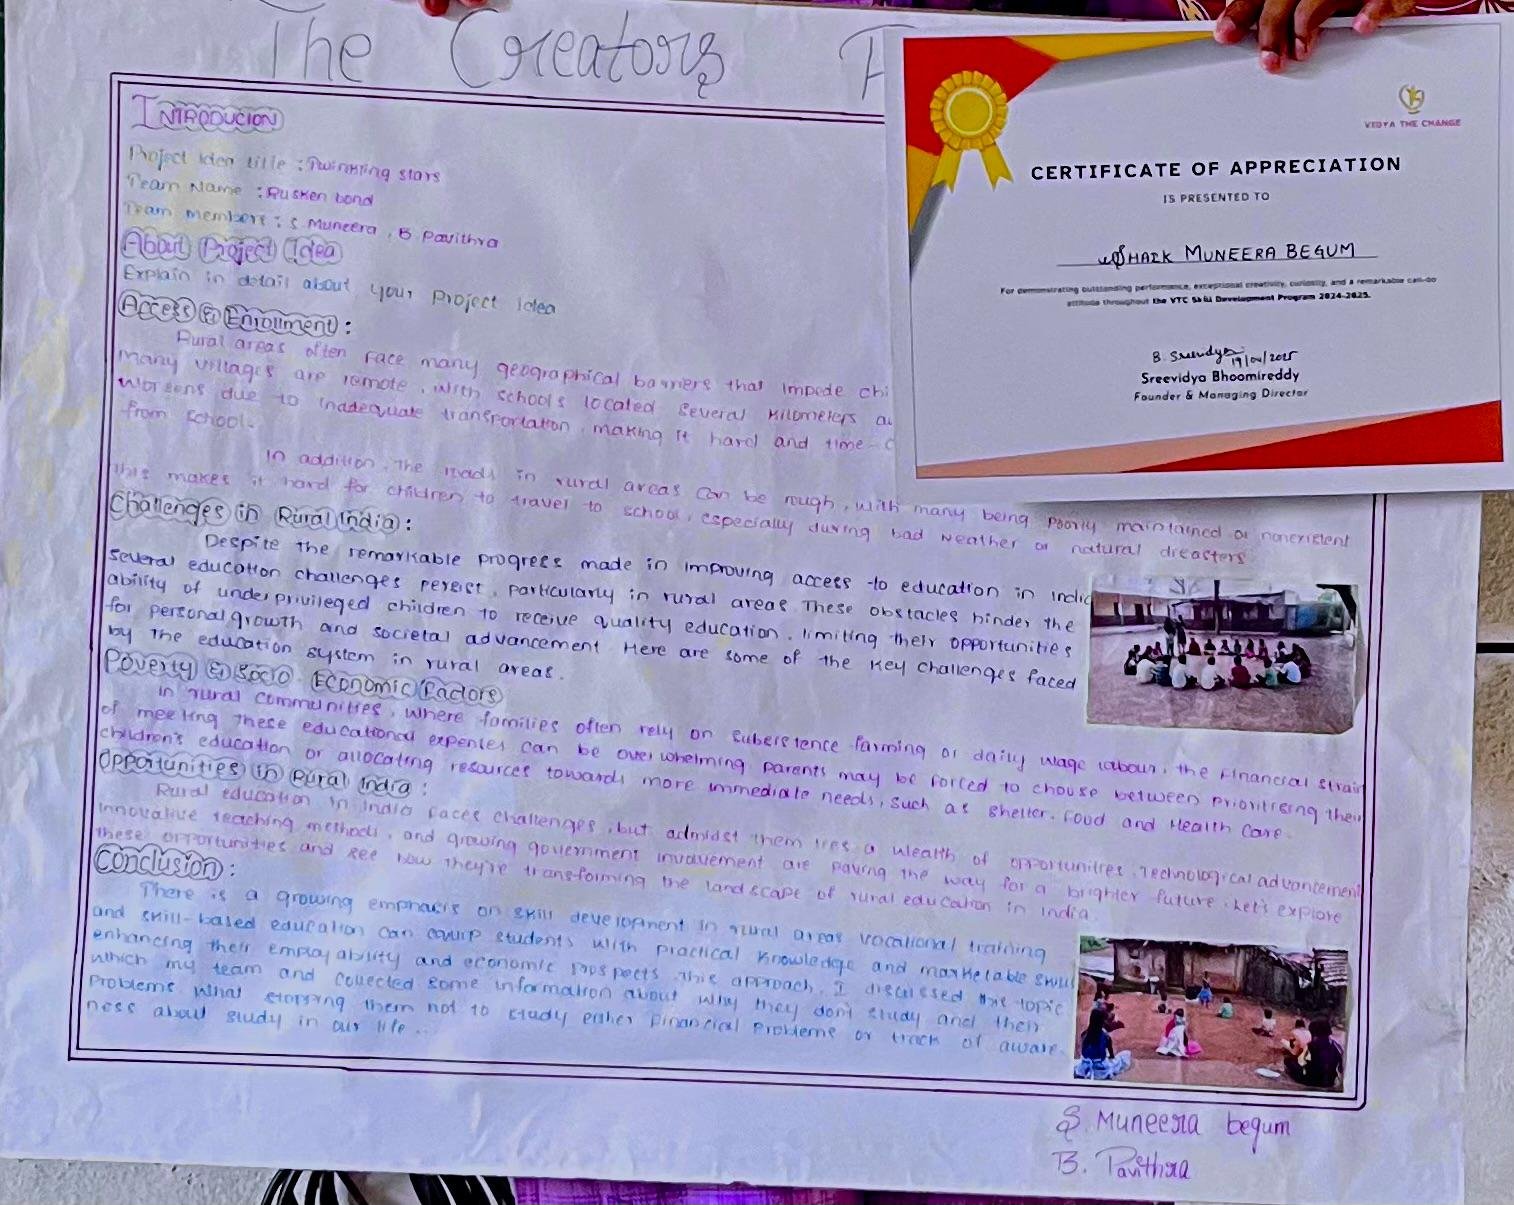 The Creators
INTRODUCION
Project Idea title : Twinkling stars
Team Name : Rusken bond
Team members : S. Muneera , B Pavithra
About Project Idea
Explain in detail about your Project Idea
Access & Enrollment :
Rural areas often Face many geographical barriers that impede chi
Many villages are remote , with schools located several kilometers a
worsens due to inadequate transportation , making it hard and time-c
from school.
In addition , the roads in rural areas can be rough , with many being poorly maintained or nonexistent
this makes it hard for children to travel to school , especially during bad weather or natural disasters
Challenges in Rural India :
Despite the remarkable progress made in improving access to education in Indi
several education challenges persist , particularly in rural areas These obstacles hinder the
ability of underprivileged children to receive quality education , limiting their opportunities
for personal growth and societal advancement Here are some of the Key challenges faced
by the education system in rural areas .
Poverty & Socio Economic Factors
In rural communities , where families often rely on subsistence farming or daily wage labour , the Financial strain
of meeting these educational expenses can be overwhelming parents may be forced to choose between prioritising their
children's education or allocating resources towards more immediate needs , such as shelter , Food and Health Care .
Opportunities in Rural India :
Rural education in India faces challenges , but admidst them lies a wealth of opportunities . Technological advancement
innovative teaching methods , and growing government involvement are paving the way for a brighter future . Let's explore
these opportunities and see how they're transforming the landscape of rural education in India
Conclusion :
There is a growing emphasis on skill development in rural areas vocational training
and skill-based education can equip students with practical knowledge and marketable skill
enhancing their employability and economic prospects . this approach , I discussed this topic
which my team and collected some information about why they don't study and their
problems what stopping them not to study either Financial Problems or track of aware-
ness about study in our life ..
S. Muneera begum
B. Pavithra
VIDYA THE CHANGE
CERTIFICATE OF APPRECIATION
IS PRESENTED TO
SHAIK MUNEERA BEGUM
For demonstrating outstanding performance, exceptional creativity, curiosity, and a remarkable can-do
attitude throughout the VTC Skill Development Program 2024-2025.
B. Sreevidya
19/04/2025
Sreevidya Bhoomireddy
Founder & Managing Director